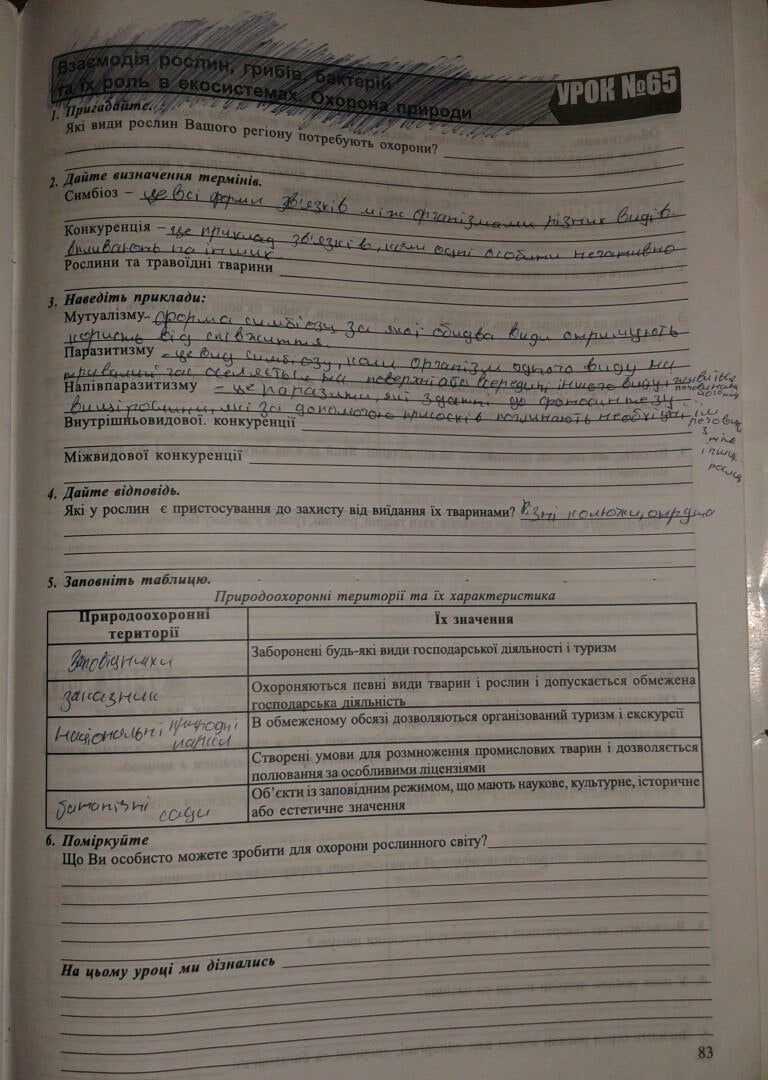 Взаємодія рослин, грибів, бактерій
та їх роль в екосистемах. Охорона природи
УРОК №65
1. Пригадайте.
Які види рослин Вашого регіону потребують охорони?
2. Дайте визначення термінів.
Симбіоз – це всі форми зв'язків між організмами різних видів.
Конкуренція – це приклад зв'язків, коли одні особини негативно
впливають на інших.
Рослини та травоїдні тварини
3. Наведіть приклади:
Мутуалізму - форма симбіозу за якої обидва види отримують
користь від співжиття.
Паразитизму - це вид симбіозу, коли організм одного виду на
тривалий час оселяється на поверхні або всередині іншого виду і живиться
Напівпаразитизму - це паразити, які здатні до фотосинтезу
вищі рослини, які за допомогою присосків поглинають необхідні їм
речовини
з
тіла
інших
рослин
Внутрішньовидової. конкуренції
Міжвидової конкуренції
4. Дайте відповідь.
Які у рослин є пристосування до захисту від виїдання їх тваринами? Різні колючки,
5. Заповніть таблицю.
Природоохоронні території та їх характеристика
Природоохоронні території Їх значення
Заповідники Заборонені будь-які види господарської діяльності і туризм
заказник Охороняються певні види тварин і рослин і допускається обмежена
господарська діяльність
національні природні парки В обмеженому обсязі дозволяються організований туризм і екскурсії
Створені умови для розмноження промислових тварин і дозволяється
полювання за особливими ліцензіями
ботанічні сади Об'єкти із заповідним режимом, що мають наукове, культурне, історичне
або естетичне значення
6. Поміркуйте
Що Ви особисто можете зробити для охорони рослинного світу?
На цьому уроці ми дізнались
83